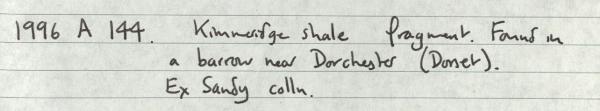 1996 A 144. Kimmeridge shale fragment. Found in
a barrow near Dorchester (Dorset).
Ex Sandy colln.